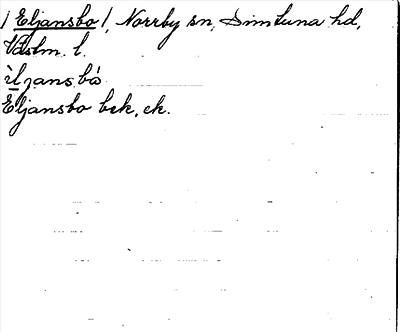 / Eljansbo /, Norrby sn, Simtuna hd,
Västm. l.
ìljansbò
Eljansbo bek, ek.